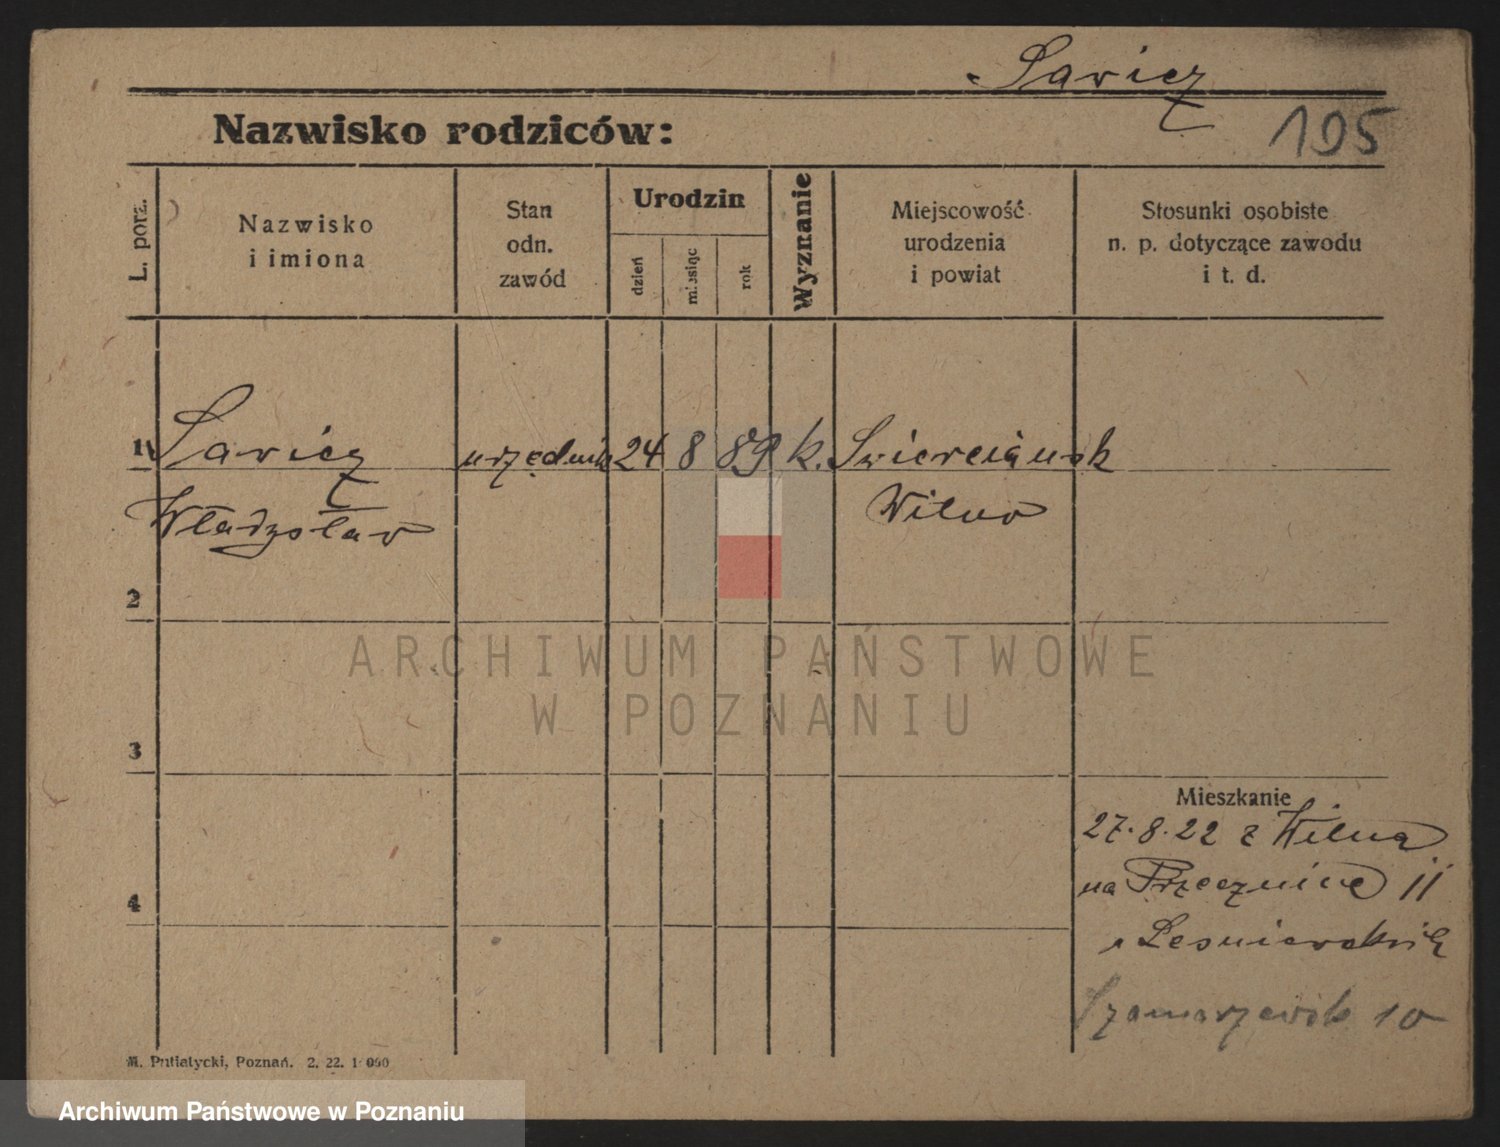 Savicz
Nazwisko rodziców:
195
L. porz.
Nazwisko
i imiona
Stan
odn.
zawód
Urodzin
dzień
miesiąc
rok
Wyznanie
Miejscowość
urodzenia
i powiat
Stosunki osobiste
n. p. dotyczące zawodu
i t. d.
1 Savicz urzędnik 24 8 89 k.
Władysław Wilno
2
ARCHIWUM PAŃSTWOWE
W POZNANIU
3
Mieszkanie
27.8.22 z Wilna
na Przecznice 11
4
Szamarzewsk 10
M. Putiatycki, Poznań. 2. 22. 1 000
Archiwum Państwowe w Poznaniu